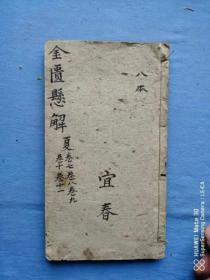 八本
金匱懸解
夏
卷七卷八卷九
卷十卷十一
宜春
HUAWEI Mate 30
SuperSensing Camera | LEICA